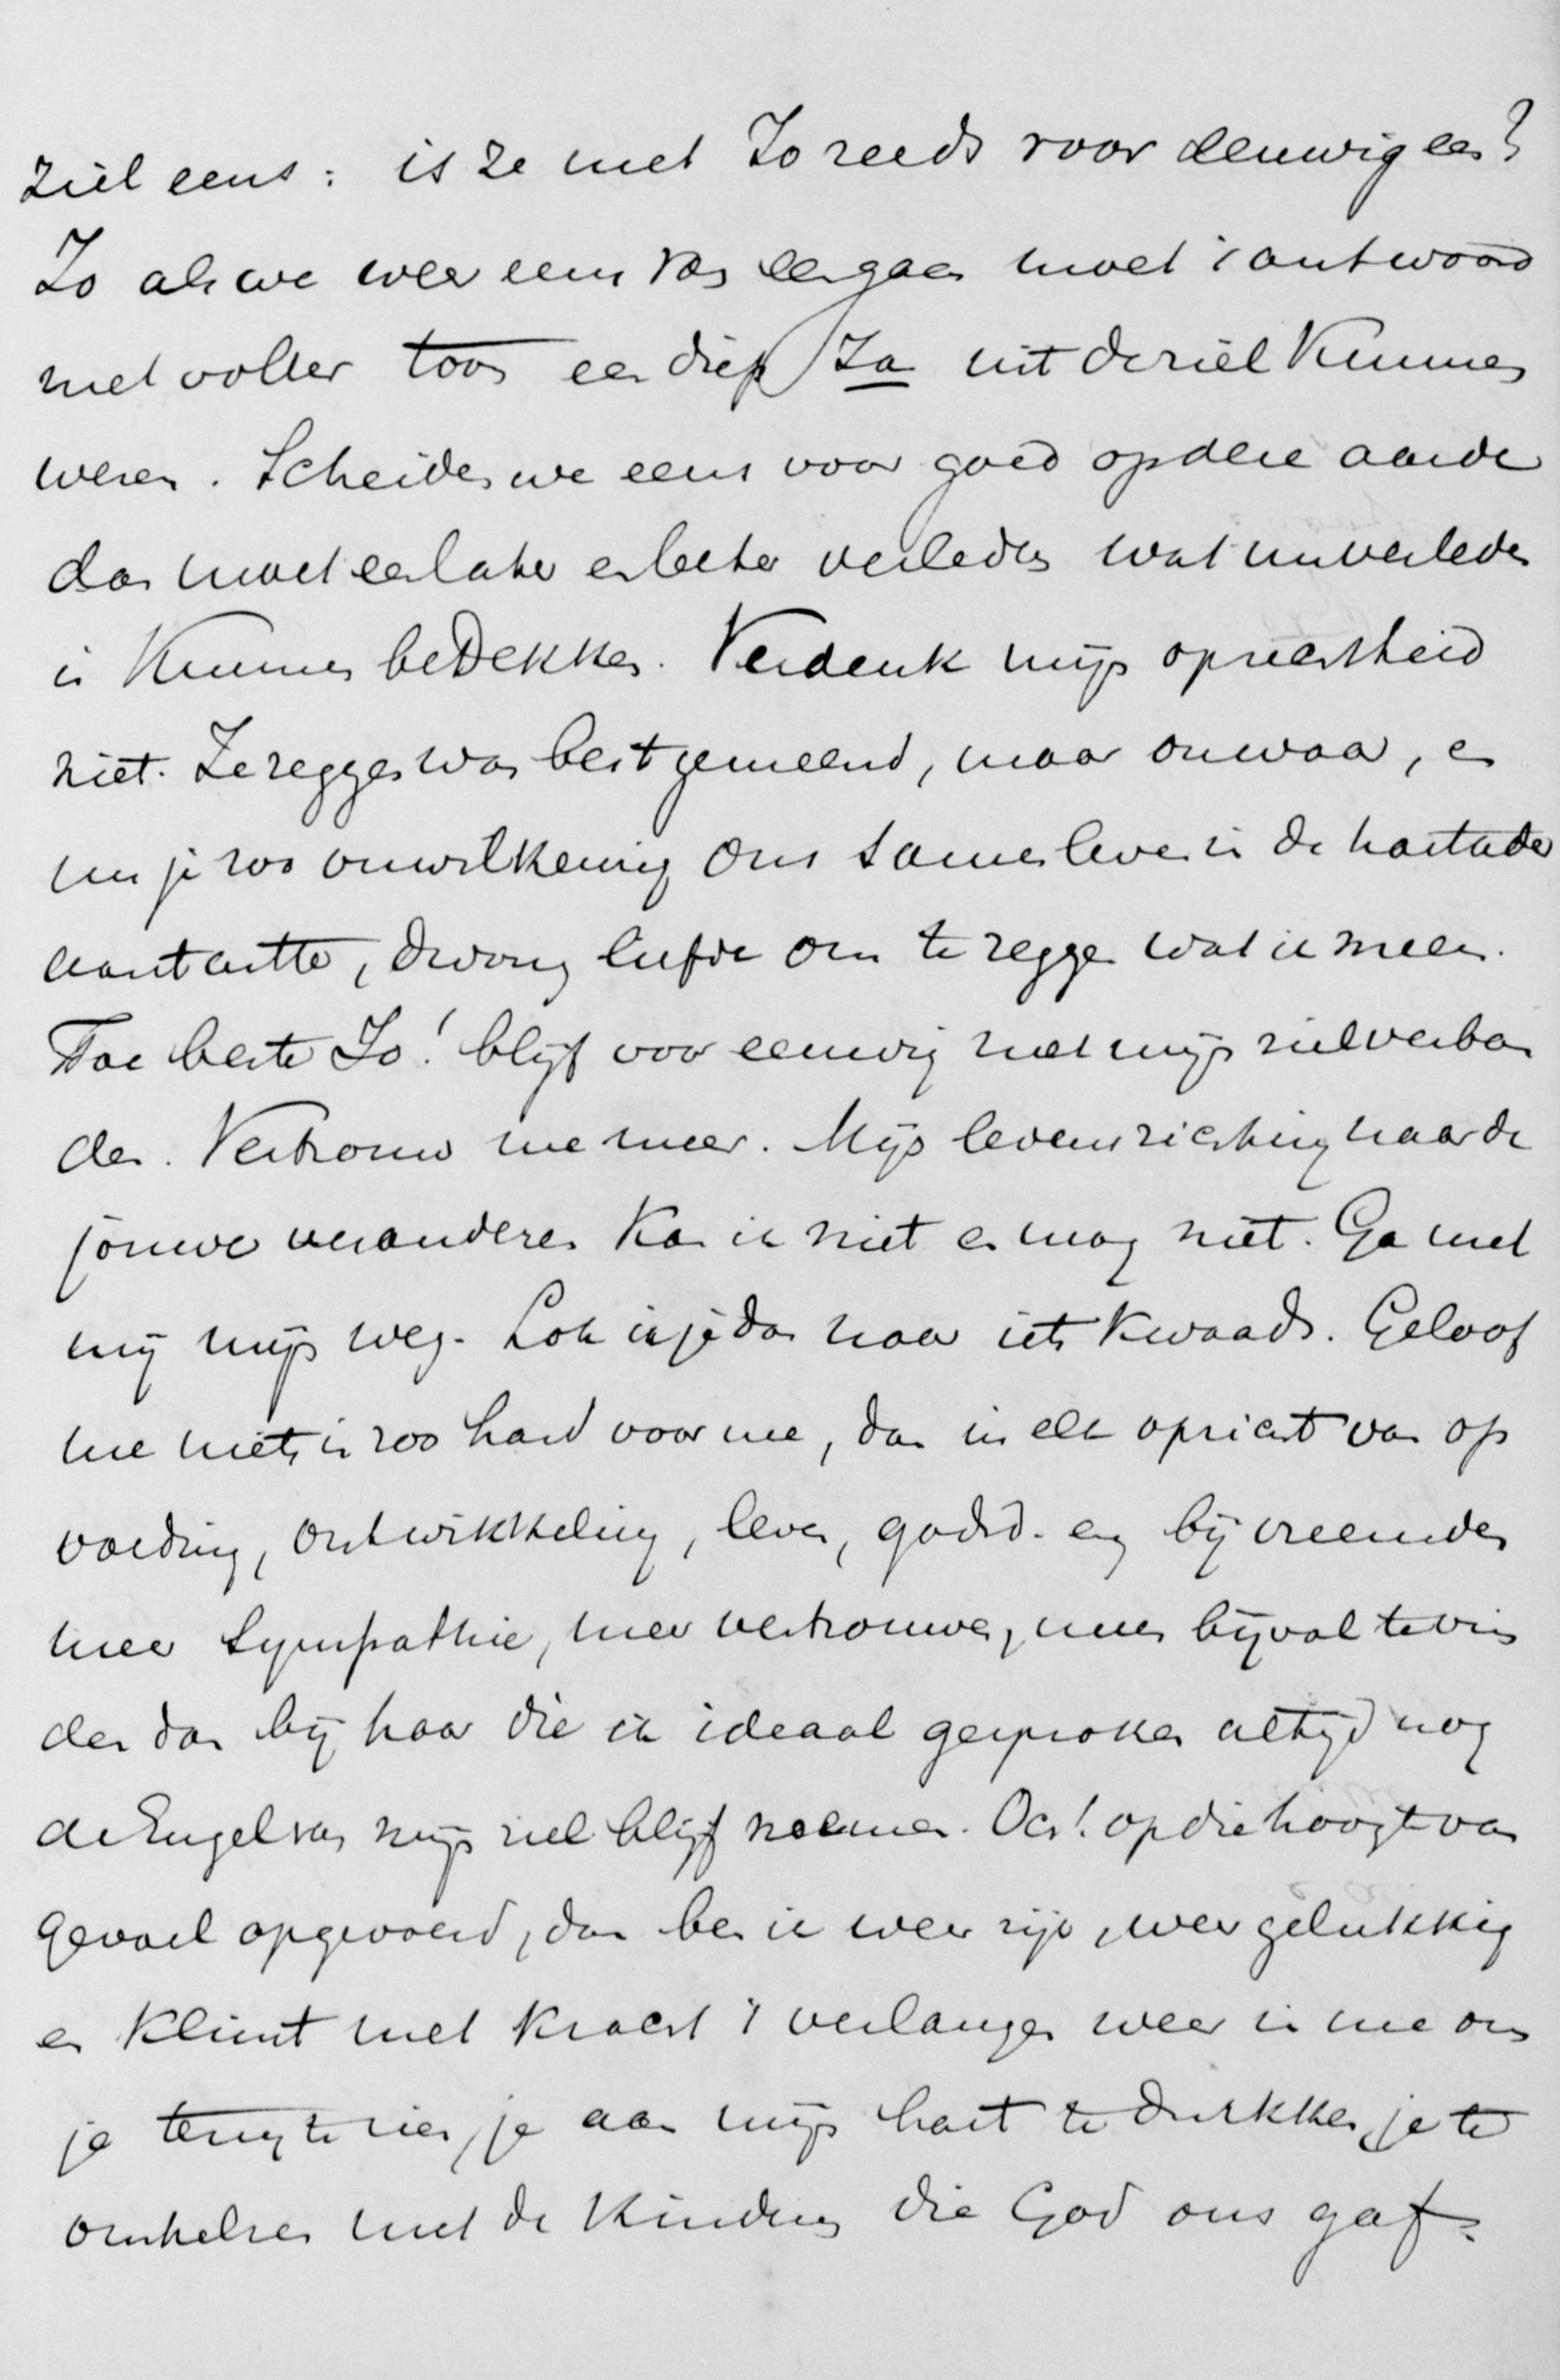 ziel eens: is ze met Jo reeds voor eeuwig een?
Jo als we weer eens van een gaan moet 't antwoord
met voller toon een diep Ja uit de ziel kunnen
wezen. Scheiden we eens voor goed op deze aarde
dan moet een later en beter verleden wat nu verleden
is kunnen bedekken. Verdenk mijn oprechtheid
niet. Je zeggen was best gemeend, maar onwaar, en
nu je zoo onwillekeurig ons samenleven in de hartader
aantastte, dwong liefde om te zeggen wat ik meen.
Toe beste Jo! blijf voor eeuwig met mijn ziel verbon
den. Vertrouw me meer. Mijn levensrichting naar de
jouwe veranderen kan ik niet en mag niet. Ga met
mij mijn weg. Lok ik je dan naar iets kwaads. Geloof
me niets is zoo hard voor me, dan in elk opzicht van op
voeding, ontwikkeling, leven, godsd. enz bij vreemden
meer sympathie, meer vertrouwen, meer bijval te vin
den dan bij haar die ik ideaal gesproken altijd nog
de Engel van mijn ziel blijf noemen. Och! op die hoogte van
gevoel opgevoerd, dan ben ik weer rijk, weer gelukkig
en klimt met kracht 't verlangen weer in me om
je terug te zien, je aan mijn hart te drukken, je te
omhelzen met de kinderen die God ons gaf.